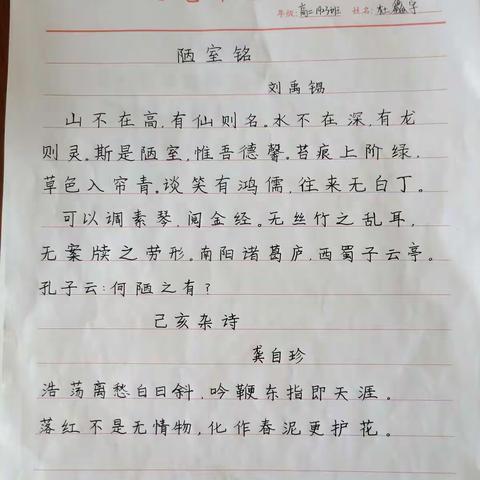 年级: 高二 班 姓名: 杜鑫宇
陋室铭
刘禹锡
山不在高,有仙则名。水不在深,有龙
则灵。斯是陋室,惟吾德馨。苔痕上阶绿,
草色入帘青。谈笑有鸿儒,往来无白丁。
可以调素琴,阅金经。无丝竹之乱耳,
无案牍之劳形。南阳诸葛庐,西蜀子云亭。
孔子云:何陋之有?
己亥杂诗
龚自珍
浩荡离愁白日斜,吟鞭东指即天涯。
落红不是无情物,化作春泥更护花。